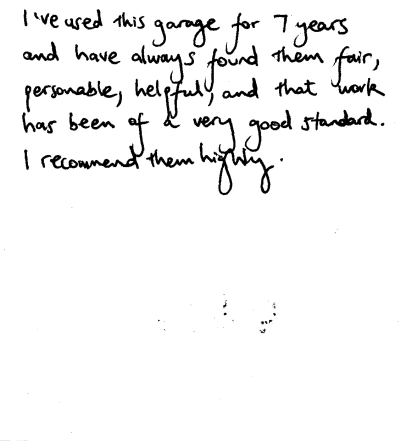 I've used this garage for 7 years
and have always found them fair,
personable, helpful, and that work
has been of a very good standard.
I recommend them highly.